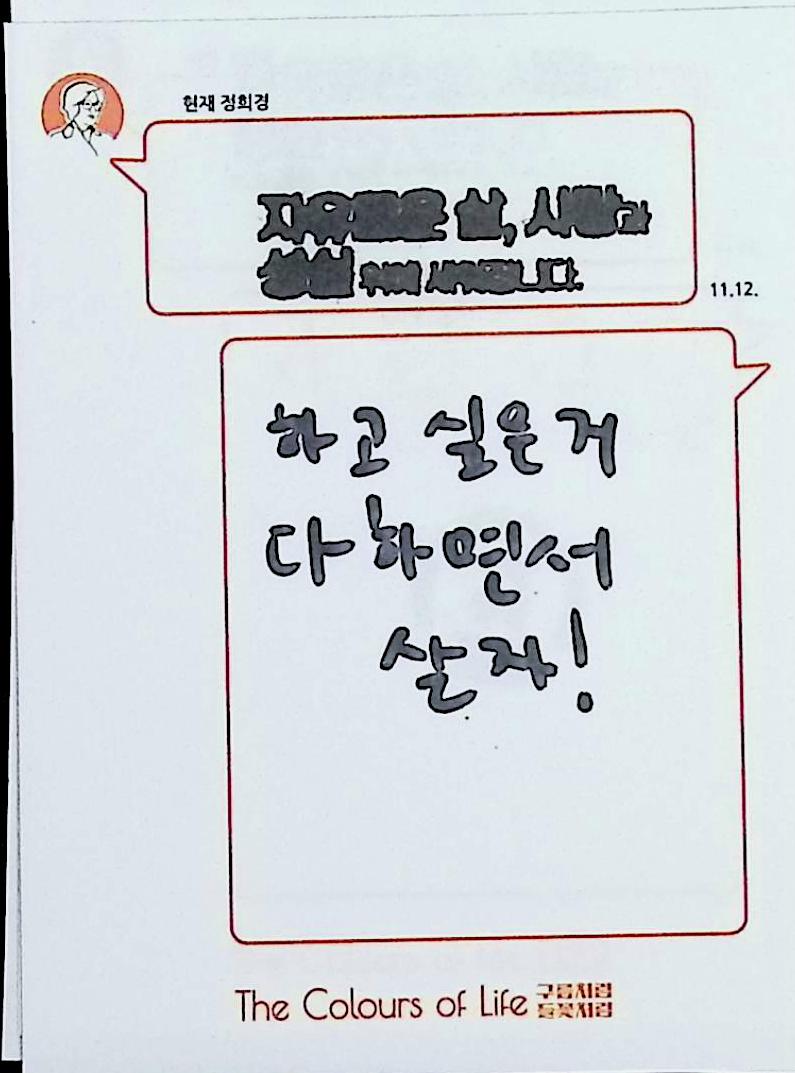 현재 정희경
자유로운 삶, 사랑과
성실 위에 세워집니다.
11.12.
하고 싶은거
다 하면서
살자!
The Colours of Life 구름처럼
들꽃처럼